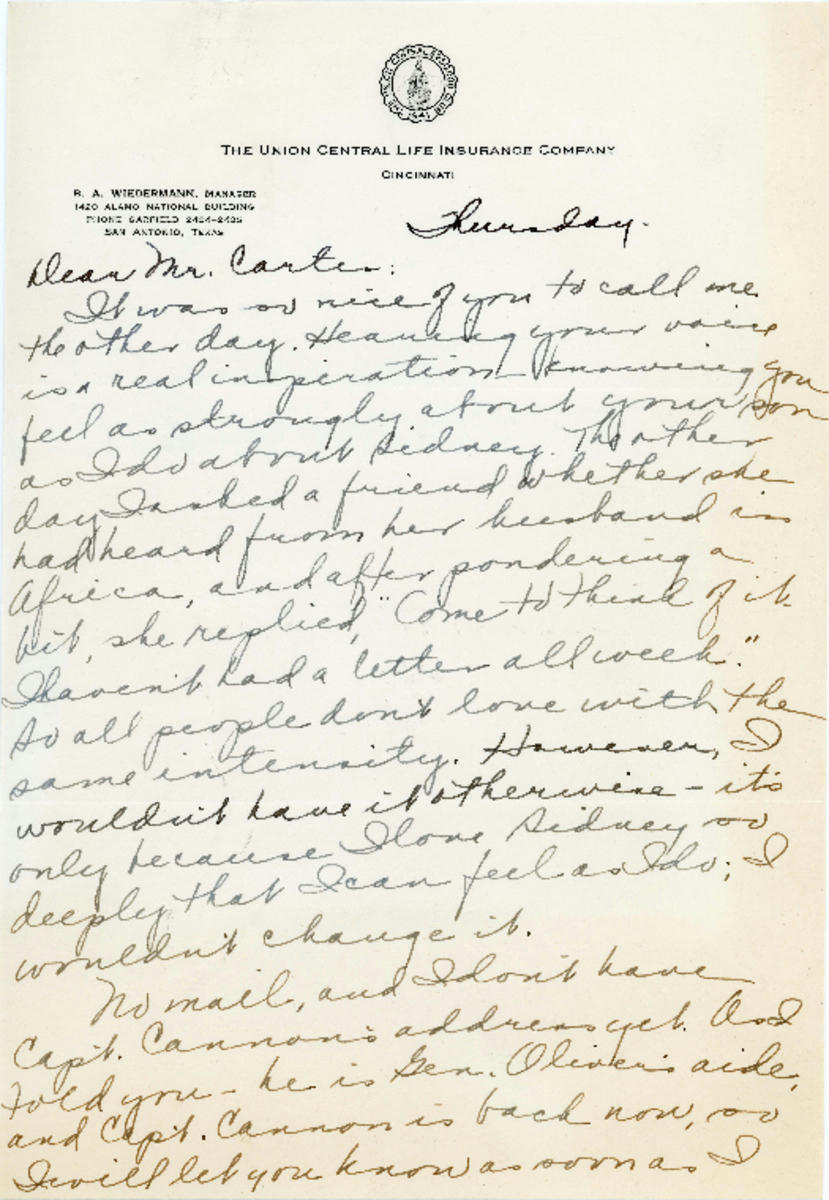 THE UNION CENTRAL LIFE INSURANCE COMPANY
CINCINNATI
B. A. WIEDERMANN, MANAGER
1420 ALAMO NATIONAL BUILDING
PHONE GARFIELD 2424-2425
SAN ANTONIO, TEXAS
Thursday.
Dear Mr. Carter:
It was so nice of you to call me
the other day. Hearing your voice
is a real inspiration - knowing you
feel as strongly about your son
as I do about Sidney. The other
day I asked a friend whether she
had heard from her husband in
Africa, and after pondering a
bit, she replied, "Come to think of it
I haven't had a letter all week."
So all people don't love with the
same intensity. However, I
wouldn't have it otherwise - it's
only because I love Sidney so
deeply that I can feel as I do; I
wouldn't change it.
No mail, and I don't have
Capt. Cannon's address yet. As I
told you - he is Gen. Oliver's aide,
and Capt. Cannon is back now, so
I will let you know as soon as I